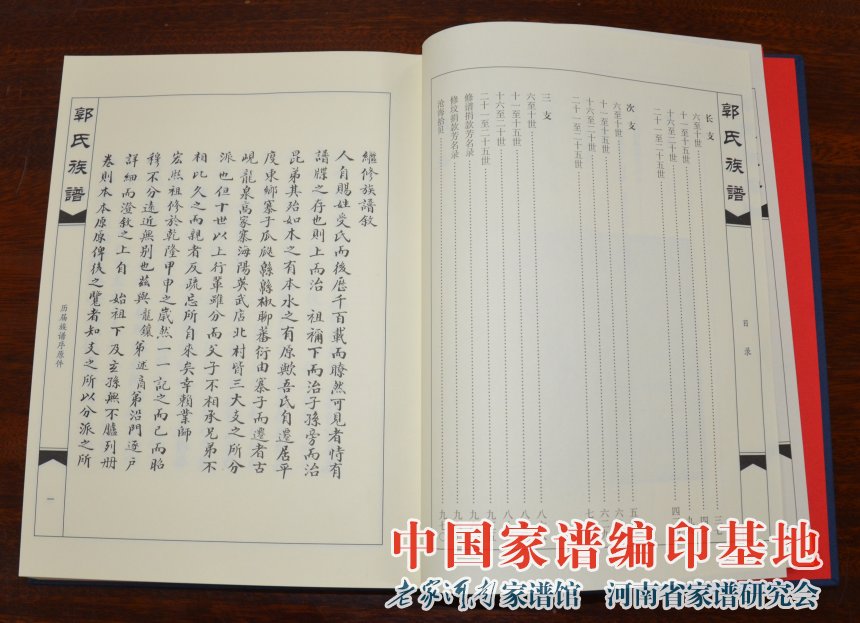 郭氏族譜
目录
长支
六至十世
十一至十五世
十六至二十世
二十一至二十五世
次支
六至十世
十一至十五世
十六至二十世
二十一至二十五世
三支
六至十世
十一至十五世
十六至二十世
二十一至二十五世
修谱捐款芳名录
修坟捐款芳名录
沧海拾贝
繼修族譜敘
人自賜姓受氏而後歷千百載而瞭然可見者恃有
譜牒之存也則上而治 祖禰下而治子孫旁而治
昆弟其殆如木之有本水之有原歟吾氏自遷居平
度東鄉寨子瓜瓞緜緜椒聊蕃衍由寨子而遷者古
峴龍泉萬家寨海陽英武店北村皆三大支之所分
派也但十世以上行輩雖分而父子不相承兄弟不
相比久之而親者反疏忘所自來矣幸賴業師
宏熙祖修於乾隆甲申之歲然一一記之而已而昭
穆不分遠近無別也茲與龍鑲弟述肩弟沿門逐戶
詳細而澄敘之上自 始祖下及玄孫無不臚列冊
卷則本本原原俾後之覽者知支之所以分派之所
郭氏族譜
历届族谱序原件
一
中国家谱编印基地
老家河南家谱馆 河南省家谱研究会